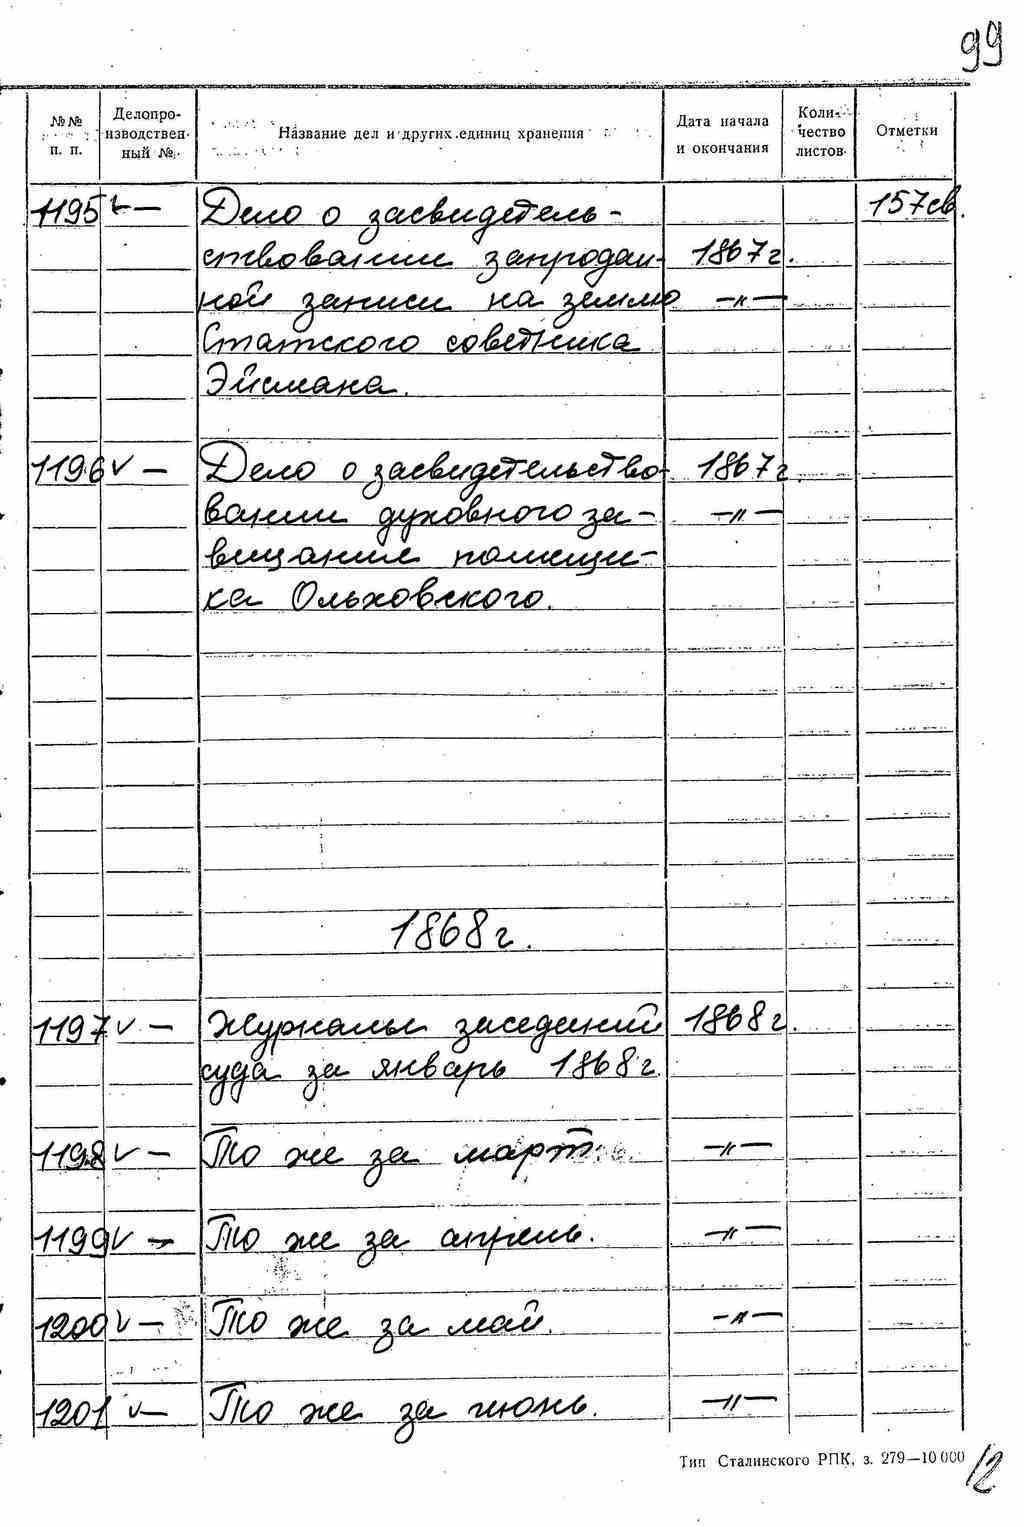 99
№№ п. п. Делопроизводственный № Название дел и других единиц хранения Дата начала и окончания Количество листов Отметки
1195 ✓ — Дело о засвидетель- 157св.
ствовании запродан- 1867г.
ной записи на землю —„—
Статского советника
Эйсмана.
1196 ✓ — Дело о засвидетельство- 1867г.
вании духовного за- —„—
вещания помещи-
ка Ольховского.
1868г.
1197 ✓ — Журналы заседаний 1868г.
суда за январь 1868г.
1198 ✓ — То же за март. —„—
1199 ✓ — То же за апрель. —„—
1200 ✓ — То же за май. —„—
1201 ✓ — То же за июнь. —„—
Тип Сталинского РПК, з. 279—10 000
12